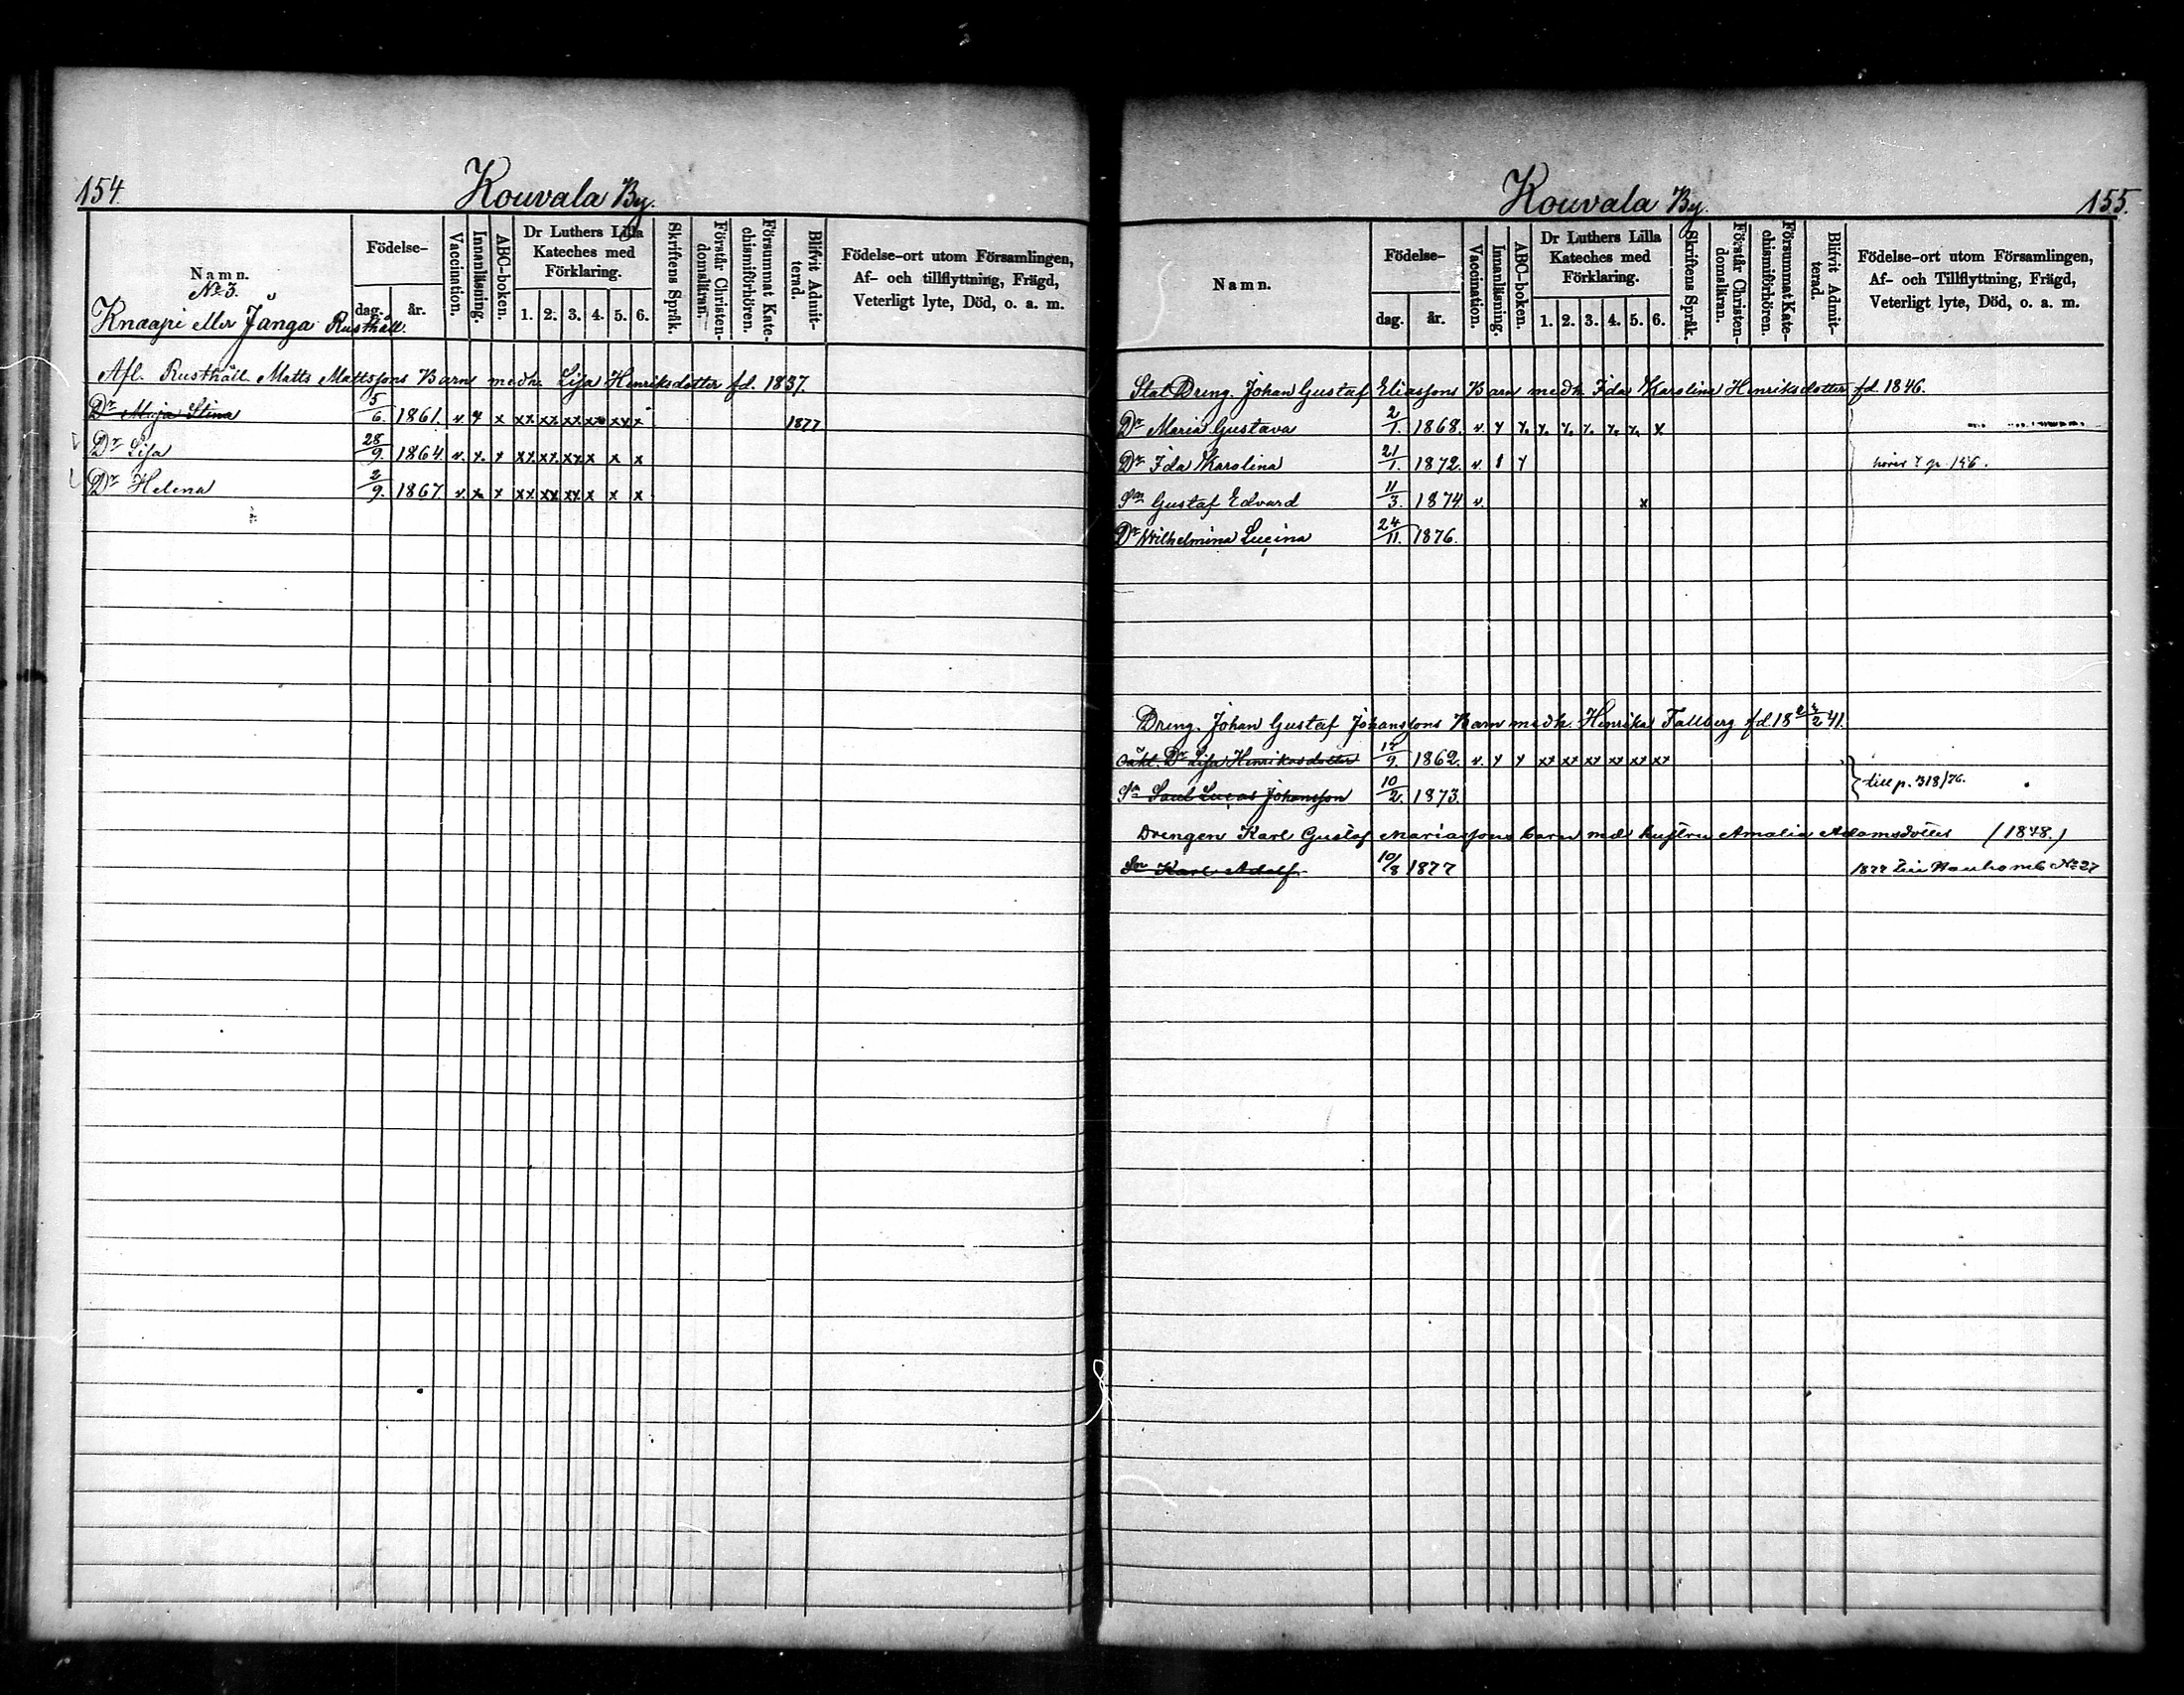 154.
Kouvala By.
Namn.
No 3.
Knaapi eller Jånga Rusthåll.
Födelse-
dag. år.
Vaccination.
Innanläsning.
ABC-boken.
Dr Luthers Lilla Kateches med Förklaring.
1. 2. 3. 4. 5. 6.
Skriftens Språk.
Förstår Christen-domsläran.
Försummat Kate-chismiförhören.
Blifvit Admit-terad.
Födelse-ort utom Församlingen,
Af- och tillflyttning, Frägd,
Veterligt lyte, Död, o. a. m.
Afl. Rusthåll. Matts Mattssons Barn medh. Lisa Henriksdotter fd. 1837.
Dr Maja Stina 5/6. 1861. v. x x xx xx xx xx xx x 1877
Dr Lisa 28/9. 1864. v. x. x xx xx. xx x x x
Dr Helena 2/9. 1867. v. x x xx xx xx x x x
Kouvala By.
155.
Namn.
Födelse-
dag. år.
Vaccination.
Innanläsning.
ABC-boken.
Dr Luthers Lilla Kateches med Förklaring.
1. 2. 3. 4. 5. 6.
Skriftens Språk.
Förstår Christen-domsläran.
Försummat Kate-chismiförhören.
Blifvit Admit-terad.
Födelse-ort utom Församlingen,
Af- och Tillflyttning, Frägd,
Veterligt lyte, Död, o. a. m.
Stat Dreng. Johan Gustaf Eliassons Barn medh. Ida Karolina Henriksdotter fd. 1846.
Dr Maria Gustava 2/1. 1868. v. x x. x. x. x. x. x. x
Dr Ida Karolina 21/1. 1872. v.
Sn Gustaf Edvard 11/3. 1874 v. x
Dr Wilhelmina Lucina 24/11. 1876.
Dreng. Johan Gustaf Johanssons Barn medh. Henrika Tallberg fd. 18 /2 41.
oäkt. Dr Lisa Henrikasdotter 17/9. 1862. v. x x xx xx xx xx xx xx
Sn Saul Lucas Johansson 10/2. 1873. till p. 318/76.
Drengen Karl Gustaf Mariassons barn med hustru Amalia Adamsdotter (1848.)
Sn Karl Adolf 10/8 1877 1877 No 27